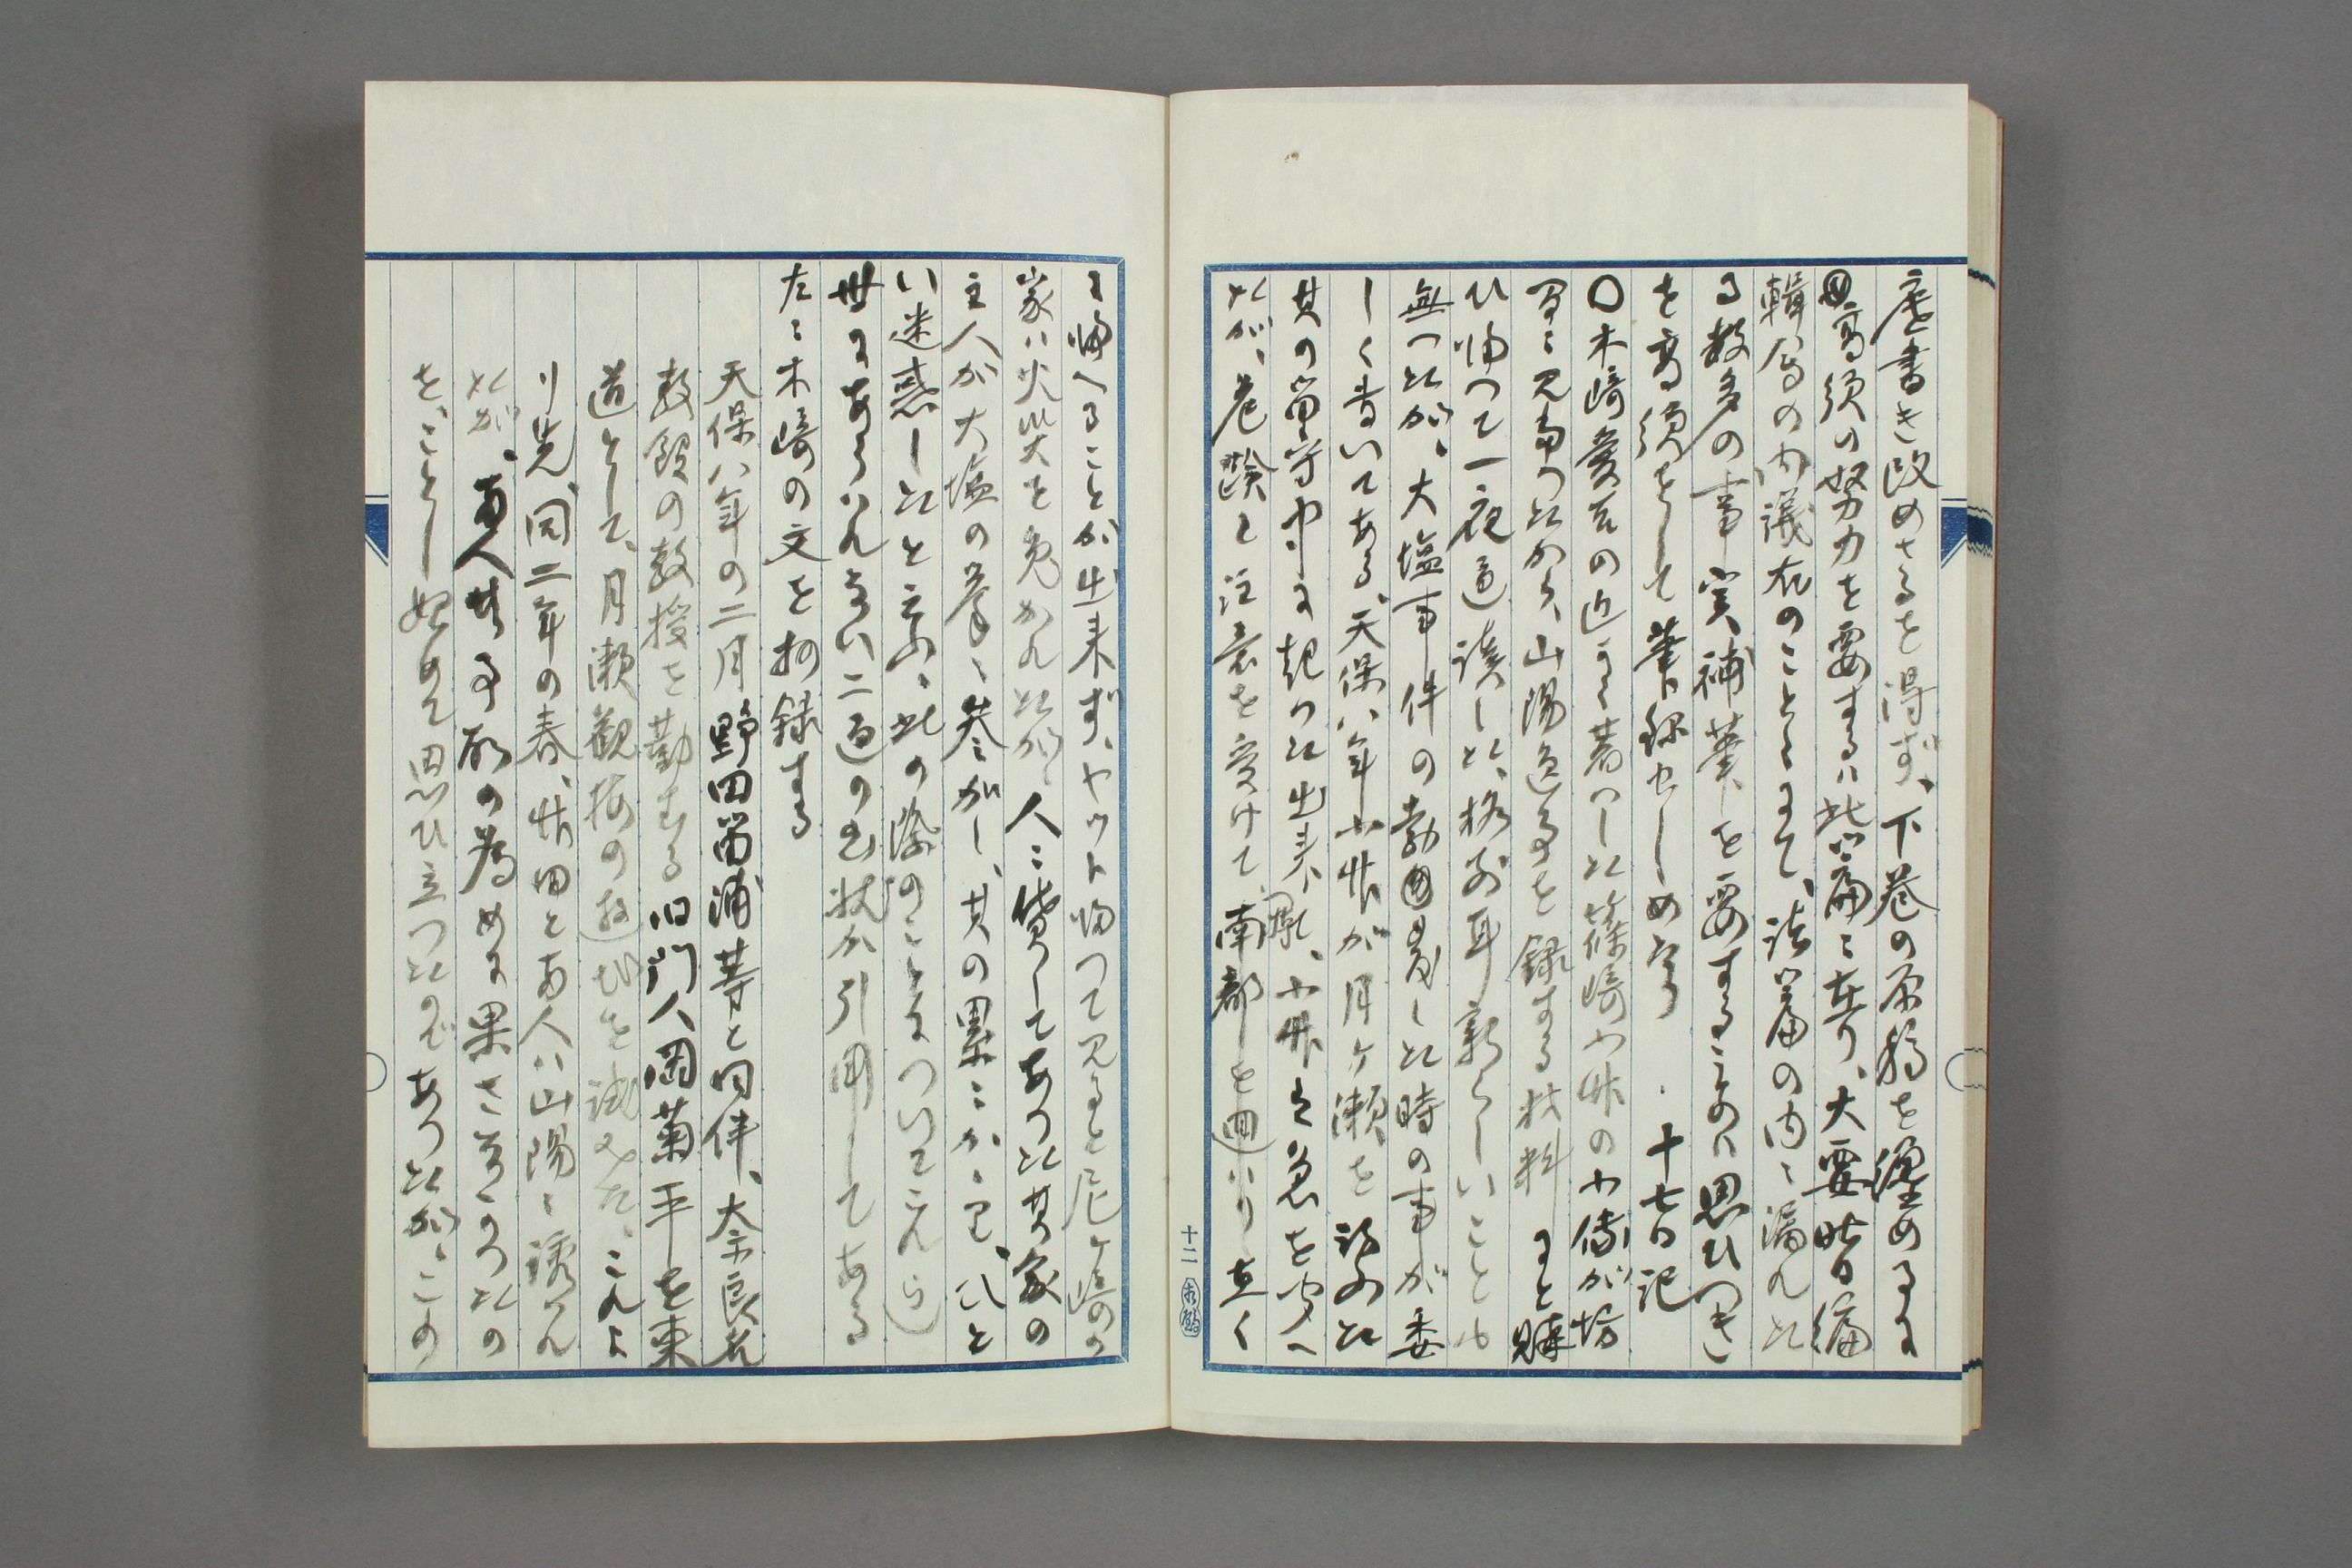 度書き改めさるを得ず、下巻の原稿を纏めるに
高須の努力を要するは此篇に在り、大要昨日編
輯局の内議在のことにて、該篇の内に漏れた
る数多の事実補筆を要することのは思ひつき
を高須をして筆録せしめたり 十七日記
〇木﨑愛吉の近く著はした篠﨑小竹の小伝が坊
間に見当つたから、山陽逸事を録する材料にと購
ひ帰つて一夜通読した、格別耳新らしいことも
無つたが、大塩事件の勃発した時の事が委
しく書いてある、天保八年小竹が月ヶ瀬を訪ふた
其の留守中に起つた出来事、小竹は急を聞へ
たが、危険と注意を受けて、南都を回りり直く
に帰へることが出来ず、ヤツト帰つて見ると尼ヶ崎の
家は火災を免かれたが、人に貸してあつた其家の
主人が大塩の挙に参加し、其の累にかゝり、小と
い迷惑したと云ふ、此の際のことについてこれら
世にあらはれない二通の書状が引用してある
左に木﨑の文を抄録する
天保八年の二月野田笛浦等と同伴、奈良
教館の教授を勤むる旧門人岡菊平を東
道として、月瀬観梅の遊びを試みた、これよ
り先、同二年の春、竹田とあ人は山陽に誘はれ
たが、両人共事故の為めに果さゞりつたの
を、ことし始めて思ひ立つたのであつたが、この
十二